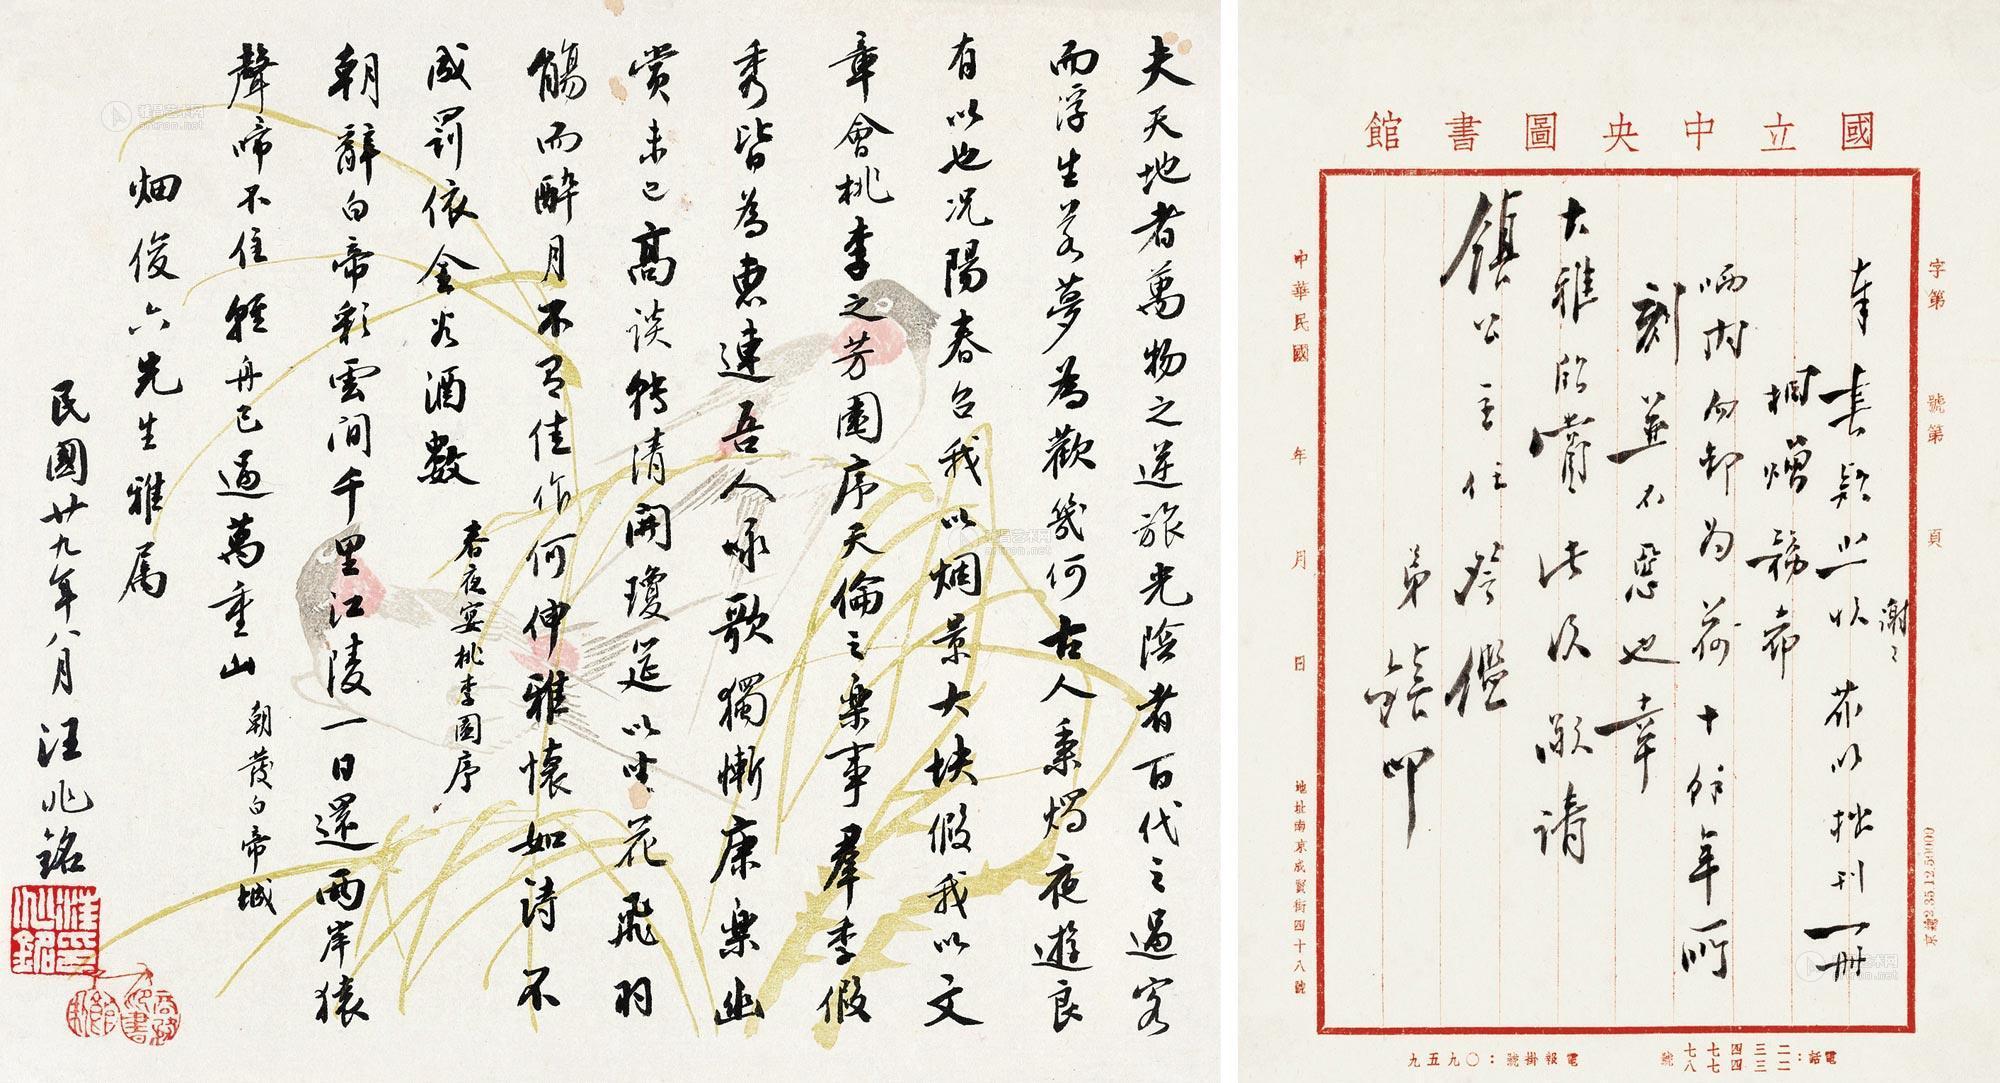 夫天地者萬物之逆旅光陰者百代之過客
而浮生若夢為歡幾何古人秉燭夜遊良
有以也況陽春召我以烟景大塊假我以文
章會桃李之芳園序天倫之樂事羣季俊
秀皆為惠連吾人咏歌獨慚康樂幽
賞未已高談轉清開瓊筵以坐花飛羽
觴而醉月不有佳作何伸雅懷如詩不
成罰依金谷酒數
春夜宴桃李園序
朝辭白帝彩雲間千里江陵一日還兩岸猿
聲啼不住輕舟已過萬重山
朝發白帝城
畑俊六先生雅属
民國廿九年八月 汪兆銘
國立中央圖書館
字第 號第 頁
謝
以拙刊一冊
哂内勿却为荷十餘年所
刻並不惡也幸
大雅欣賞
鎮公主任 鑑
弟
中華民國 年 月 日
地址南京成賢街四十八號
京總2 25.12.50000
電報掛號：〇九五九
電話：二二三三四四七七七八號
雅昌艺术网
artron.net